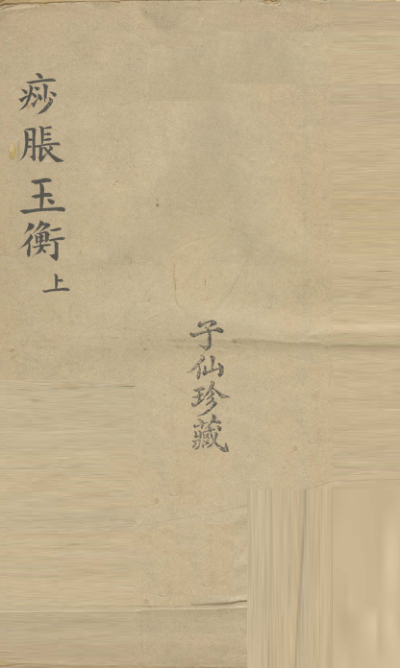 痧脹玉衡上
子仙珍藏